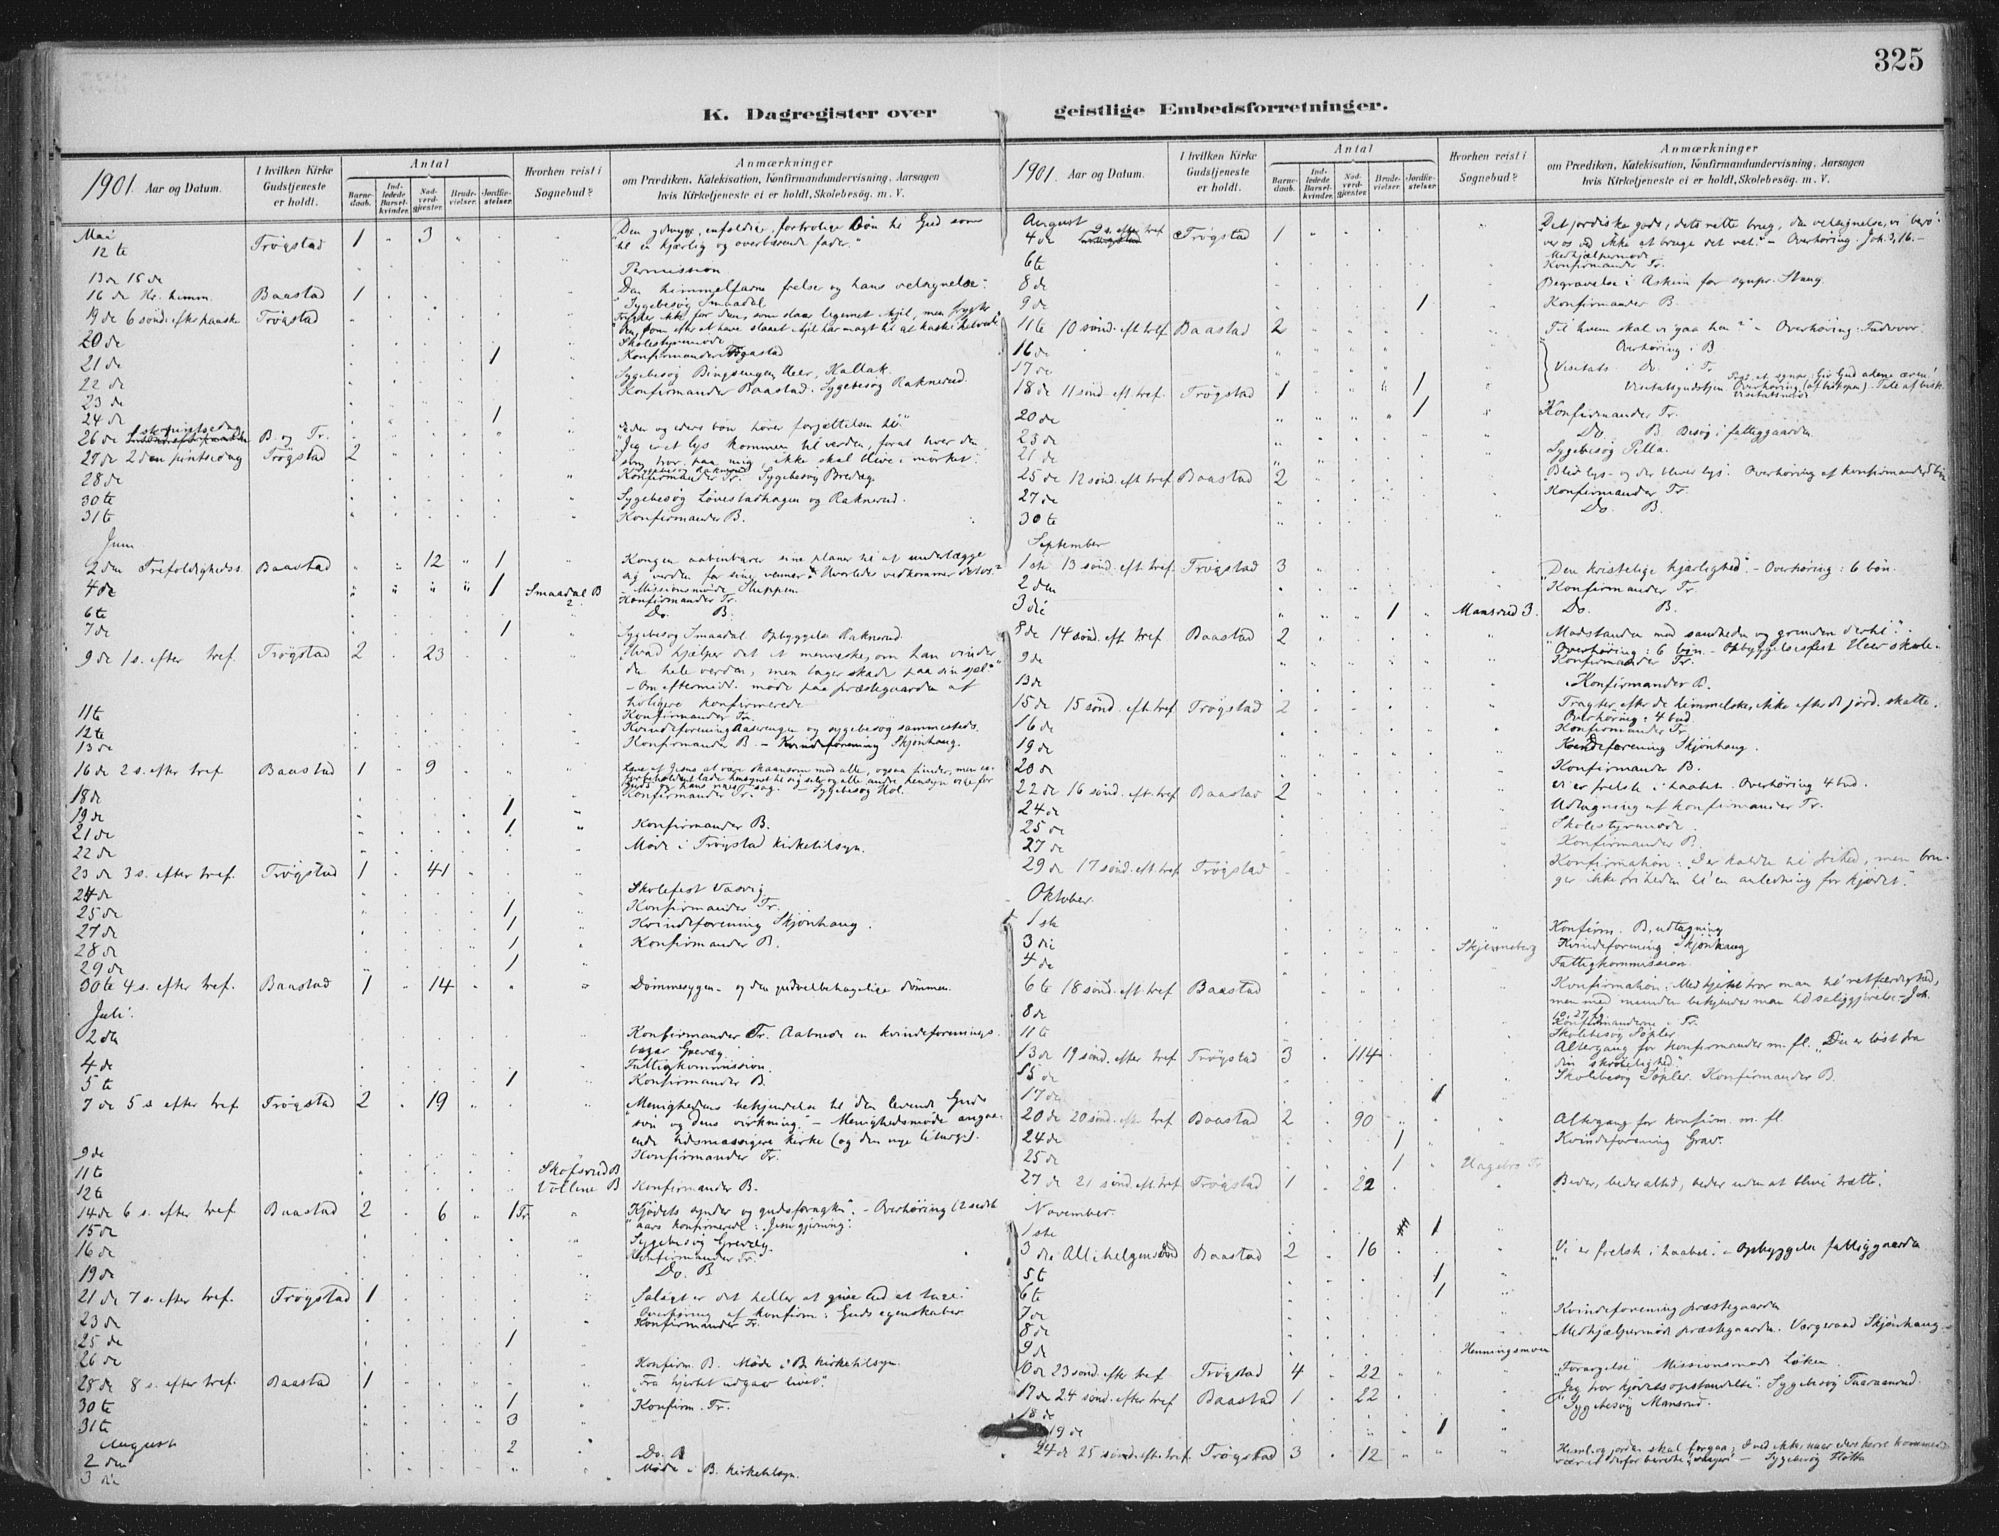 325
K. Dagregister over geistlige Embedsforretninger.
1901. Aar og Datum.
I hvilken Kirke Gudstjeneste er holdt.
Antal
Barnedaab.
Indledede Barselkvinder.
Nadverdgjester.
Brudevielser.
Jordfæstelser.
Hvorhen reist i Sognebud?
Anmærkninger
om Prædiken, Katekisation, Konfirmandundervisning, Aarsagen
hvis Kirketjeneste ei er holdt, Skolebesøg. m. V.
Mai
12te Trøgstad 1 " 3 "
til en kjærlig og overbærende fader."
13de 15de Permission
16de Kr. himm. Baastad 1 Den himmelfarne frelser og hans velsignelse.
Sygebesøg Smaadal
19de 6 sønd. efter paaske Trøgstad
20de Skolestyremøde
21de 1 Konfirmander Trøgstad
22de
23de Konfirmander Baastad. Sygebesøg Raknerud.
24de 1
26de 1ste pintsedag B. og Tr.
27de 2den pintsedag Trøgstad 2 som tror paa mig ikke skal blive i mørket.
28de Konfirmander Tr. Sygebesøg Bredeg.
30te Sygebesøg Løvestadhagen og Raknerud.
31te Konfirmander B.
Juni
2den Trefoldighedss. Baastad " " 12 " 1 Kongen aabenbarer sine planer til at underlægge
sig verden for sine venner. Hvorledes vedkommer det os?
4de " " " " 1 Smaadal B - Missionsmøde
Konfirmander Tr.
6te Do. B.
7de 1 Sygebesøg Smaadal Opbyggelse Raknerud.
9de 1 s. efter tref. Trøgstad 2 23 "Hvad hjælper det et menneske, om han vinder
den hele verden, men tager skade paa sin sjæl"
- Om eftermidd. møde paa præstegaarden af
tidligere konfirmerede
11te Konfirmander Tr.
12te Kvindeforening Aaserengen og sygebesøg sammesteds.
13de Konfirmander B. - Kvindeforening Skjønhaug.
16de 2 s. efter tref Baastad 1 9
18de Konfirmander Tr. - Sygebesøg Hol.
19de 1
21de 1 Konfirmander B.
22de Møde i Trøgstad kirketilsyn.
23de 3 s. efter tref. Trøgstad 1 41
24de Skolefest Vasvig
25de 1 Konfirmander Tr.
27de 1 Kvindeforening Skjønhaug.
28de 1 Konfirmander B.
29de 1
30te 4 s. efter tref. Baastad 1 14 Dømmesygen - og den gudvelbehagelige dømmen.
Juli
2den Konfirmander Tr. Aabnede en kvindeforenings-
bazar Grevæg.
4de Fattigkommission.
5te 1 Konfirmander B.
7de 5 s. efter tref. Trøgstad 2 19 "Menighedens bekjendelse til den levende Guds
søn og dens virkning. - Menighedsmøde angaa-
ende tidsmæssigere kirke (og den nye liturgi).
9de Konfirmander Tr.
11te Skofsrud B
12te Vollene B Konfirmander B.
14de 6 s. efter tref. Baastad 2 6 1 Tr. "Kjødets synder og gudsfrygten". - Overhøring (2 sidste
aars konfirmerede: Jesu gjerning.
15de Sygebesøg Grevæg.
16de Konfirmander Tr.
19de Do. B
21de 7 s. efter tref. Trøgstad 1 Saligt er det heller at give end at tage.
Overhøring af konfirm: Guds egenskaber
23de Konfirmander Tr.
25de 1
26de Konfirm. B. Møde i B. kirketilsyn.
28de 8 s. efter tref. Baastad 1 "Fra hjertet udgaar livet".
30te 1 Konfirm. Tr.
31te 3
August
2den 2 Do. B
3die Møde i B. kirketilsyn.
1901. Aar og Datum.
I hvilken Kirke Gudstjeneste er holdt.
Antal
Barnedaab.
Indledede Barselkvinder.
Nadverdgjester.
Brudevielser.
Jordfæstelser.
Hvorhen reist i Sognebud?
Anmærkninger
om Prædiken, Katekisation, Konfirmandundervisning, Aarsagen
hvis Kirketjeneste ei er holdt, Skolebesøg. m. V.
August
4de 9 s. efter tref Trøgstad 1 Det jordiske gods, dets rette brug, den velsignelse, vi berø-
ver os ved ikke at bruge det vel." - Overhøring. Joh. 3, 16. -
Medhjælpermøde
6te Konfirmander Tr.
8de Begravelse i Askim for sognpr. Stang.
9de 1 Konfirmander B.
11te 10 sønd. eft tref. Baastad 2 Til hvem skal vi gaa hen?" - Overhøring: Fadervor.
16de Overhøring i B.
17de Visitats. Do. i Tr.
18de 11 sønd. eft. tref. Trøgstad 1 1
20de 1 Konfirmander Tr.
23de Do. B Besøg i fattiggaarden
21de Sygebesøg Pella.
25de 12 sønd. eft tref Baastad 2 Bliv lys - og der bliver lys. Overhøring af konfirmander
27de Konfirmander Tr.
30te Do. B.
September
1ste 13 sønd. eft tref. Trøgstad 3 Den kristelige kjærlighed". - Overhøring: 6 bøn.
2den Konfirmander Tr.
3die 1 Mansrud 3. Do. B.
8de 14 sønd. eft. tref Baastad 2 "Modstanden mod sandheden og grunden dertil".
Overhøring: 6 bøn. - Opbyggelsesfest Heer skole.
9de Konfirmander Tr.
13de Konfirmander B.
15de 15 sønd. eft. tref Trøgstad 2 Tragter efter de himmelske, ikke efter de jord. skatte.
Overhøring: 4 bud
16de Konfirmander Tr
19de Kvindeforening Skjønhaug.
20de Konfirmander B.
22de 16 sønd. eft. tref Baastad 2 Vi er frelste i haabet. Overhøring 4 bud.
24de Udtagning af konfirmander Tr.
25de Skolestyremøde.
27de Konfirmander B.
29de 17 sønd. eft. tref Trøgstad Konfirmation: "I er kaldte til frihed, men bru-
ger ikke friheden til en anledning for kjødet".
Oktober.
1ste Konfirm. B, udtagning
3die Skjenneberg Kvindeforening Skjønhaug
4de Fattigkommission.
6te 18 sønd. eft. tref Baastad Konfirmation: Med hjertet tror man til retfærdighed,
men med munden bekjender man til saliggjørelse - Joh.
10, 27 fg.
8de Konfirmanderne i Tr.
11te Skolebesøg Søpler
13de 19 sønd. efter tref Trøgstad 3 114 Altergang for konfirmander m. fl. "Du er løst fra
din skrøbelighed."
15de Skolebesøg Søpler. Konfirmander B.
17de 1
20de 20 sønd. eft. tref Baastad 2 90 Altergang for konfirm. m. fl.
24de 1 Kvindeforening Grav.
25de 1 Hagebro Tr.
27de 21 sønd. eft. tref Trøgstad 1 22 "Beder, beder altid, beder uden at blive trætte".
November.
1ste 1
3die Allehelgensdag Baastad 2 16 "Vi er frelst i haabet". - Opbyggelse fattiggaarden
5te 1
6te 1
7de Kvindeforening præstegaarden
8de Medhjælpermøde præstegaarden. Værgeraad Skjønhaug.
9de Henningsmoen
10de 23 sønd. efter tref Trøgstad 4 22 "Forargelse" Missionsmøde Løken.
17de 24 sønd. efter tref Baastad 1 22 "Jeg tror kjødets opstandelse". Sygebesøg Taraanrud.
18de Sygebesøg Mansrud.
19de 1
24de 25 sønd. eft. tref. Trøgstad 3 12 Himl. og jorden skal forgaa; I ved ikke, naar eders herre kommer
værer derfor beredte - Sygebesøg